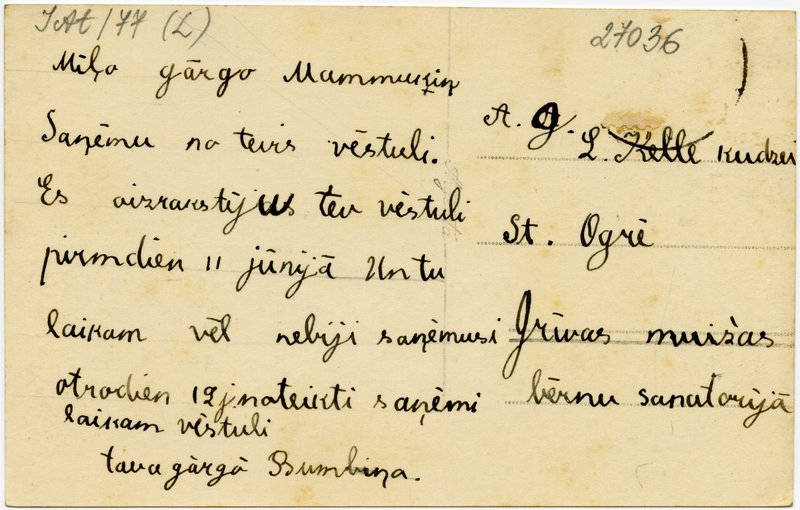 JAt/77 (L)
27036
Mīļo gārgo Mammukiņ
Saņēmu no tevis vēstuli.
Es aizrakstījus tev vēstuli
pirmdien 11 jūnijā Un tu
laikam vēl nebiji saņēmusi
otrodien 12 j. noteikti saņēmi
laikam vēstuli
tava gārgā Bumbiņa.
A. g.
L. Ķelle kundzei
St. Ogrē
Grīvas muižas
bērnu sanatorijā